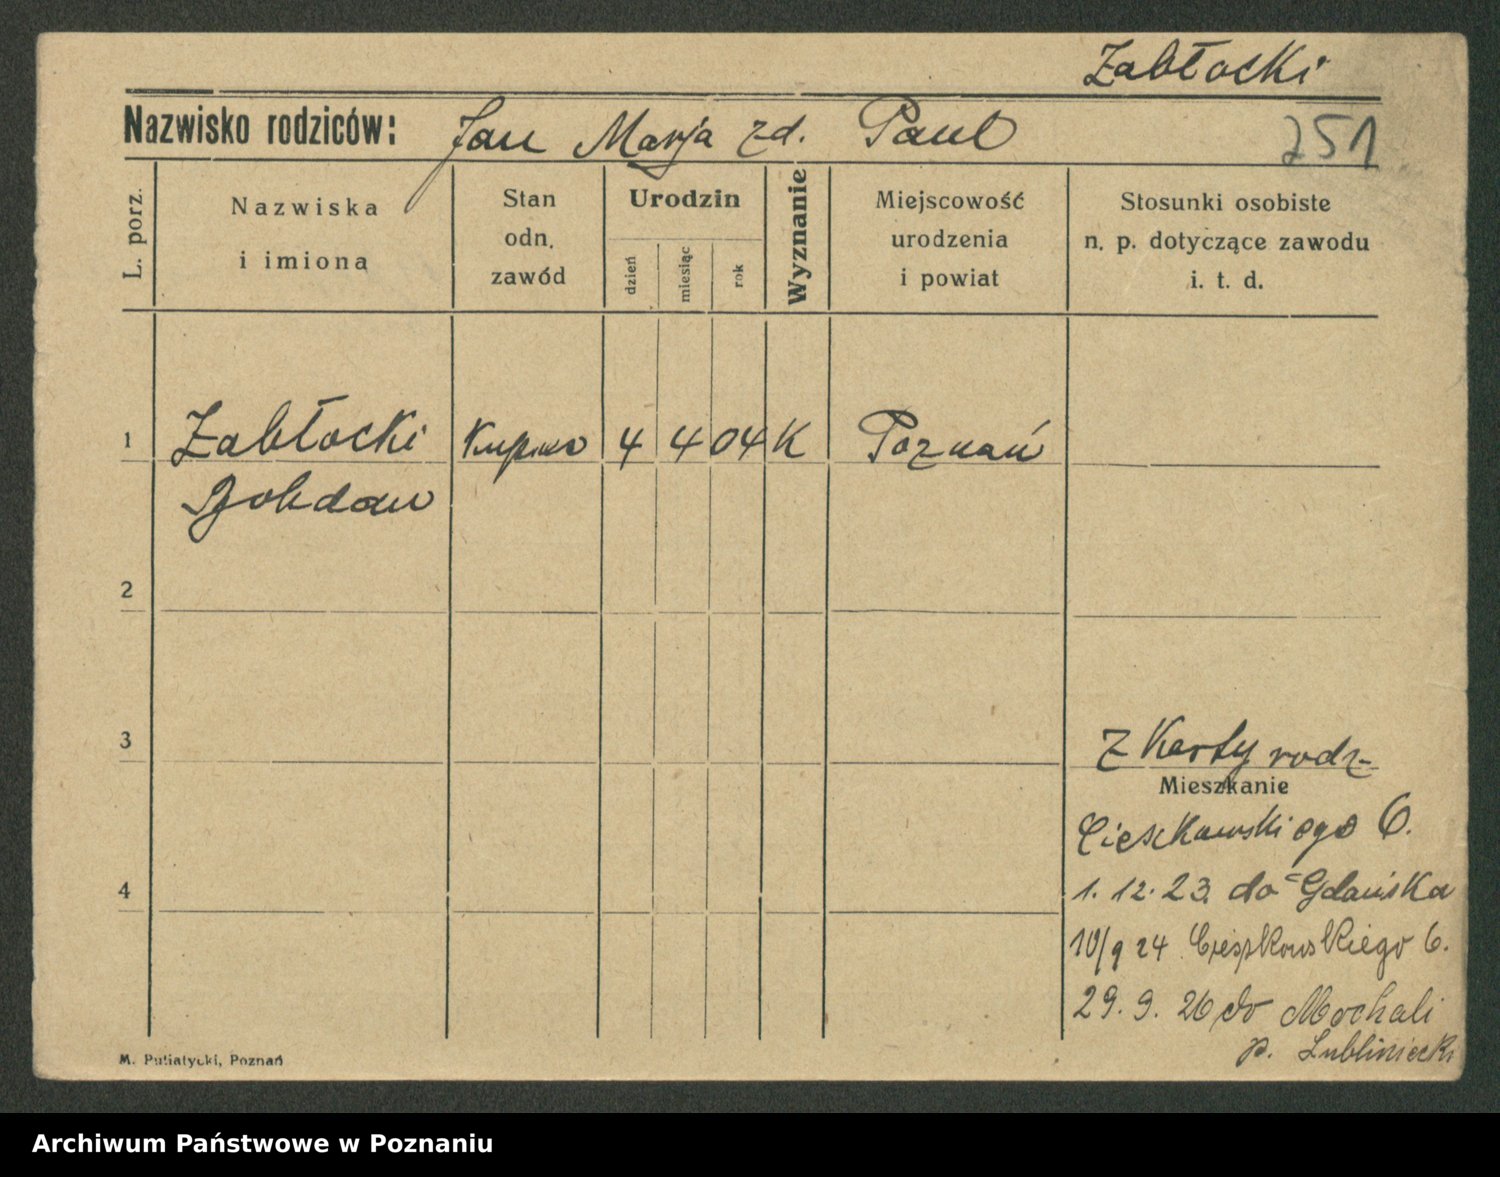 Zabłocki
Nazwisko rodziców: Jan Marja zd. Paul
251
L. porz.
Nazwiska
i imiona
Stan
odn.
zawód
Urodzin
dzień
miesiąc
rok
Wyznanie
Miejscowość
urodzenia
i powiat
Stosunki osobiste
n. p. dotyczące zawodu
i. t. d.
1 Zabłocki Kupiec 4 4 04 K Poznań
Bohdan
2
3
Z Karty rodz.
Mieszkanie
Cieszkowskiego 6.
4
1. 12. 23. do Gdańska
10/9 24 Cieszkowskiego 6.
29. 9. 26 do Mochali
p. Lubliniecki
M. Putiatycki, Poznań
Archiwum Państwowe w Poznaniu